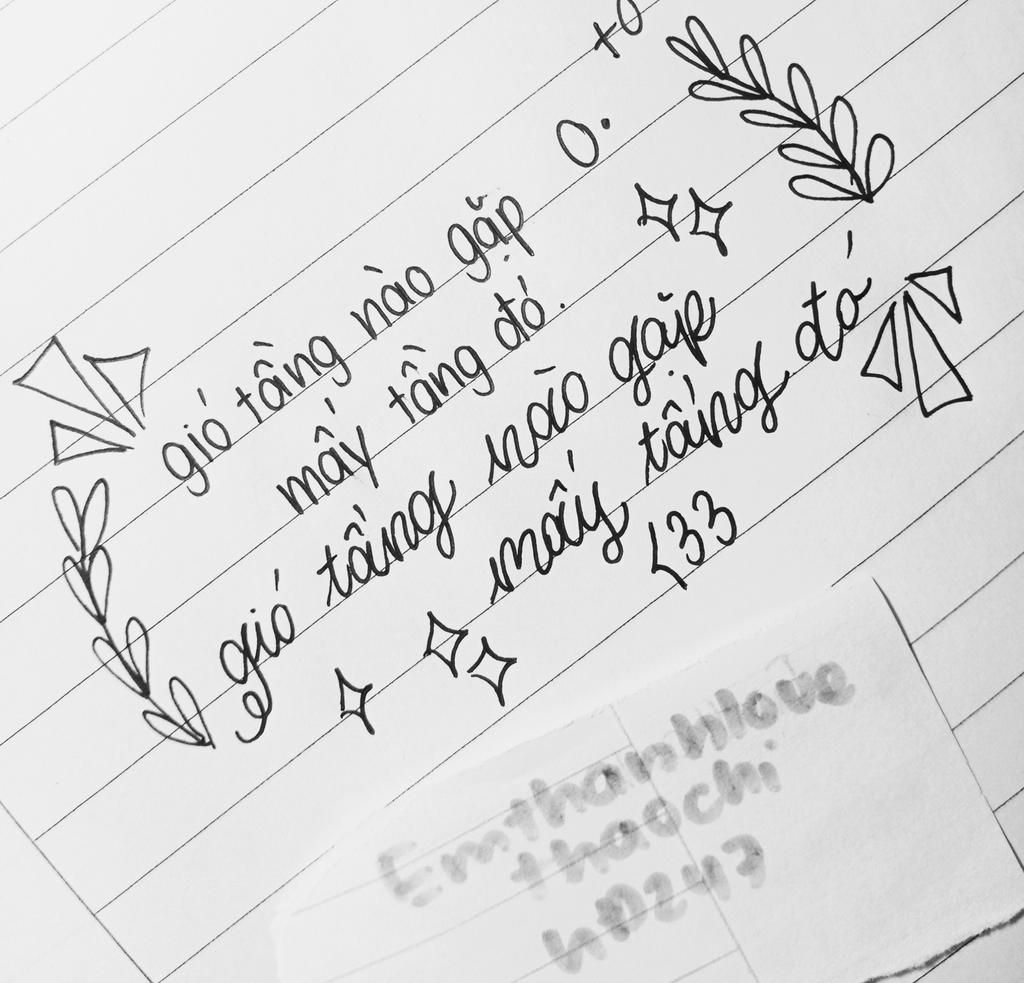 +0
0.
gió tầng nào gặp
mấy tầng đó.
gió tầng nào gặp
mấy tầng đó
<33
Emthanhlove
thaochi